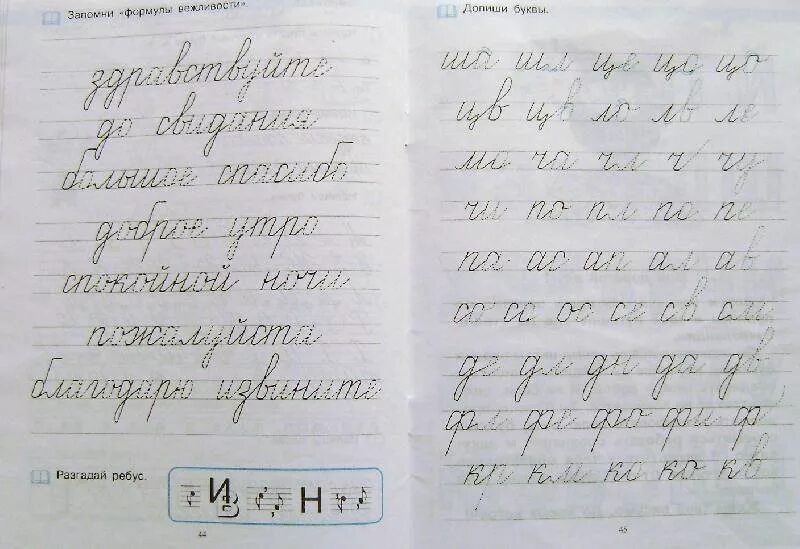 Запомни «формулы вежливости».
здравствуйте
до свидания
большое спасибо
доброе утро
спокойной ночи
пожалуйста
благодарю извините
Разгадай ребус.
И Н
44
Допиши буквы.
ша шл це ца цо
цв цв ло лв ле
ма ча чл ч чу
чи по пл па пе
па ас ап ал ав
со са ос се св сы
де дл дн да дв
фл фе фо фи ф
кр кл ка ко кв
45